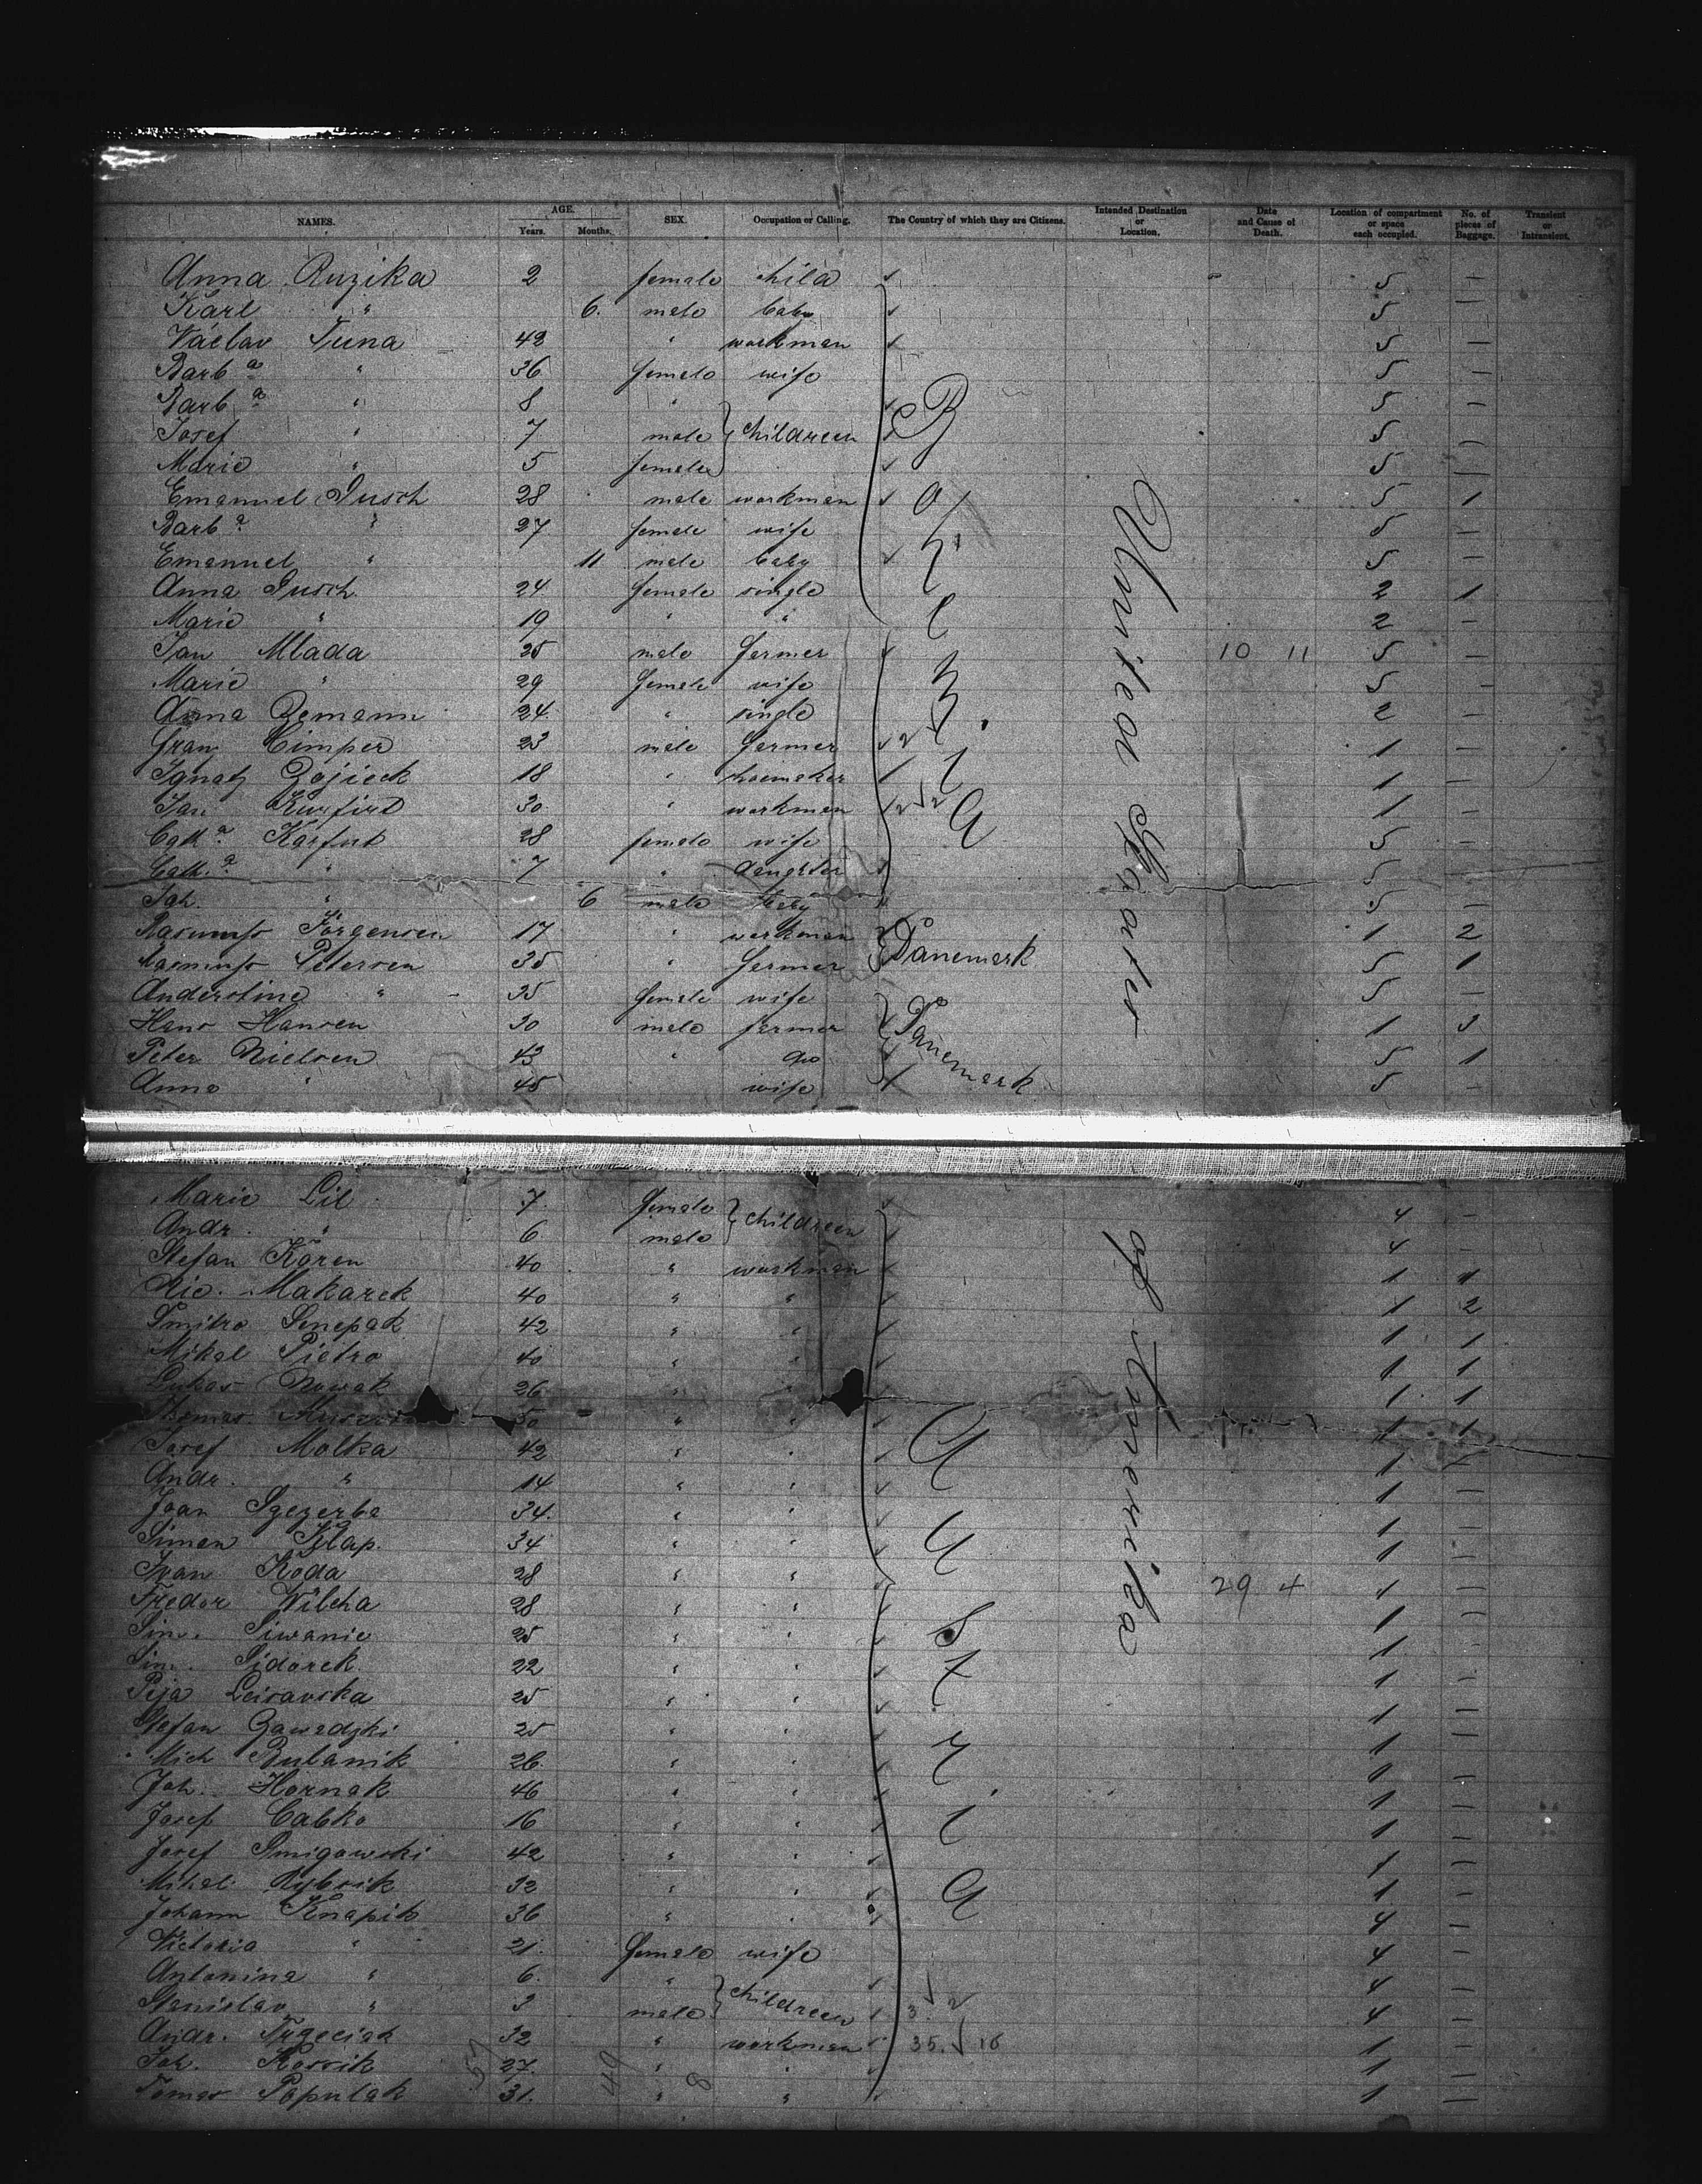 NAMES. AGE. Years. Months. SEX. Occupation or Calling. The Country of which they are Citizens. Intended Destination or Location. Date and Cause of Death. Location of compartment or space each occupied. No. of pieces of Baggage. Transient or Intransient.
Anna Ruzika 2 female child 5 —
Karl " 6. male baby 5 —
Václav Tuna 42 " workman 5 —
Barbᵃ " 36 female wife 5 —
Barbᵃ " 8 " 5 —
Josef " 7 male children 5 —
Marie " 5 female 5 —
Emanuel Pusch 28 male workman 5 1
Barbᵃ " 27 female wife 5 —
Emanuel " 11 male baby 5 —
Anna Pusch 24 female single 2 1
Marie " 19 " " 2 —
Jan Mlada 25 male farmer 10 11 5 —
Marie " 29 female wife 5 —
Anna Zemann 24 " single 2 —
Fran Cimper 23 male farmer 1 —
Ignatz Zajieck 18 " 1 —
Jan 30 " workman 1 —
Cathᵃ 28 female wife 5 —
Cathᵃ " 7 " daughter 5 —
Joh. " 6 male baby 5 —
Jörgensen 17 " workman Dänemark 1 2
Petersen 35 " farmer 5 1
Anderstine " 35 female wife 5 —
Hans Hansen 30 male farmer Dänemark 1 3
Peter Nielsen 43 " do 5 1
Anna " 45 wife 5 —
United Staates
Marie Lil 7. female children 4 —
Andr. " 6 male 4 —
Stefan Koren 40 " workman 1 1
Nic. Makarek 40 " " 1 2
Dmitro Senepak 42 " " 1 1
Mikal Pietro 40 " " 1 1
Lukas Nowak 26 " " 1 1
Thomas 50 " " 1 1
Josef Molka 42 " " 1 —
Andr. " 14 " " 1 —
Joan Szczerba 34. " " 1 —
Simen Klap. 34 " " 1 —
Ivan Koda 28 " " 29 4 1 —
Fredor Wilcha 28 " " 1 —
Sim. Siwanic 25 " " 1 —
Sim. Sidorek 22 " " 1 —
Leisavska 25 " " 1 —
Stefan Zawadzki 25 " " 1 —
Mich Bulanik 26. " " 1 —
Joh. Hornak 46 " " 1 —
Josef Cabko 16 " " 1 —
Josef Smigowski 42 " " 1 —
Mikal Rybcik 32 " " 1 —
Johann Knapik 36 " " 4 —
Victoria " 21. female wife 4 —
Antonina " 6. " children 4 —
Stanislav " 3 male 4 —
Andr. Trzeciak 32 " workman 35. 16 1 —
Joh. Kossik 27. " " 1 —
Tomas Papulak 31. " " 1 —
Austria
of Amerika
57 49 8